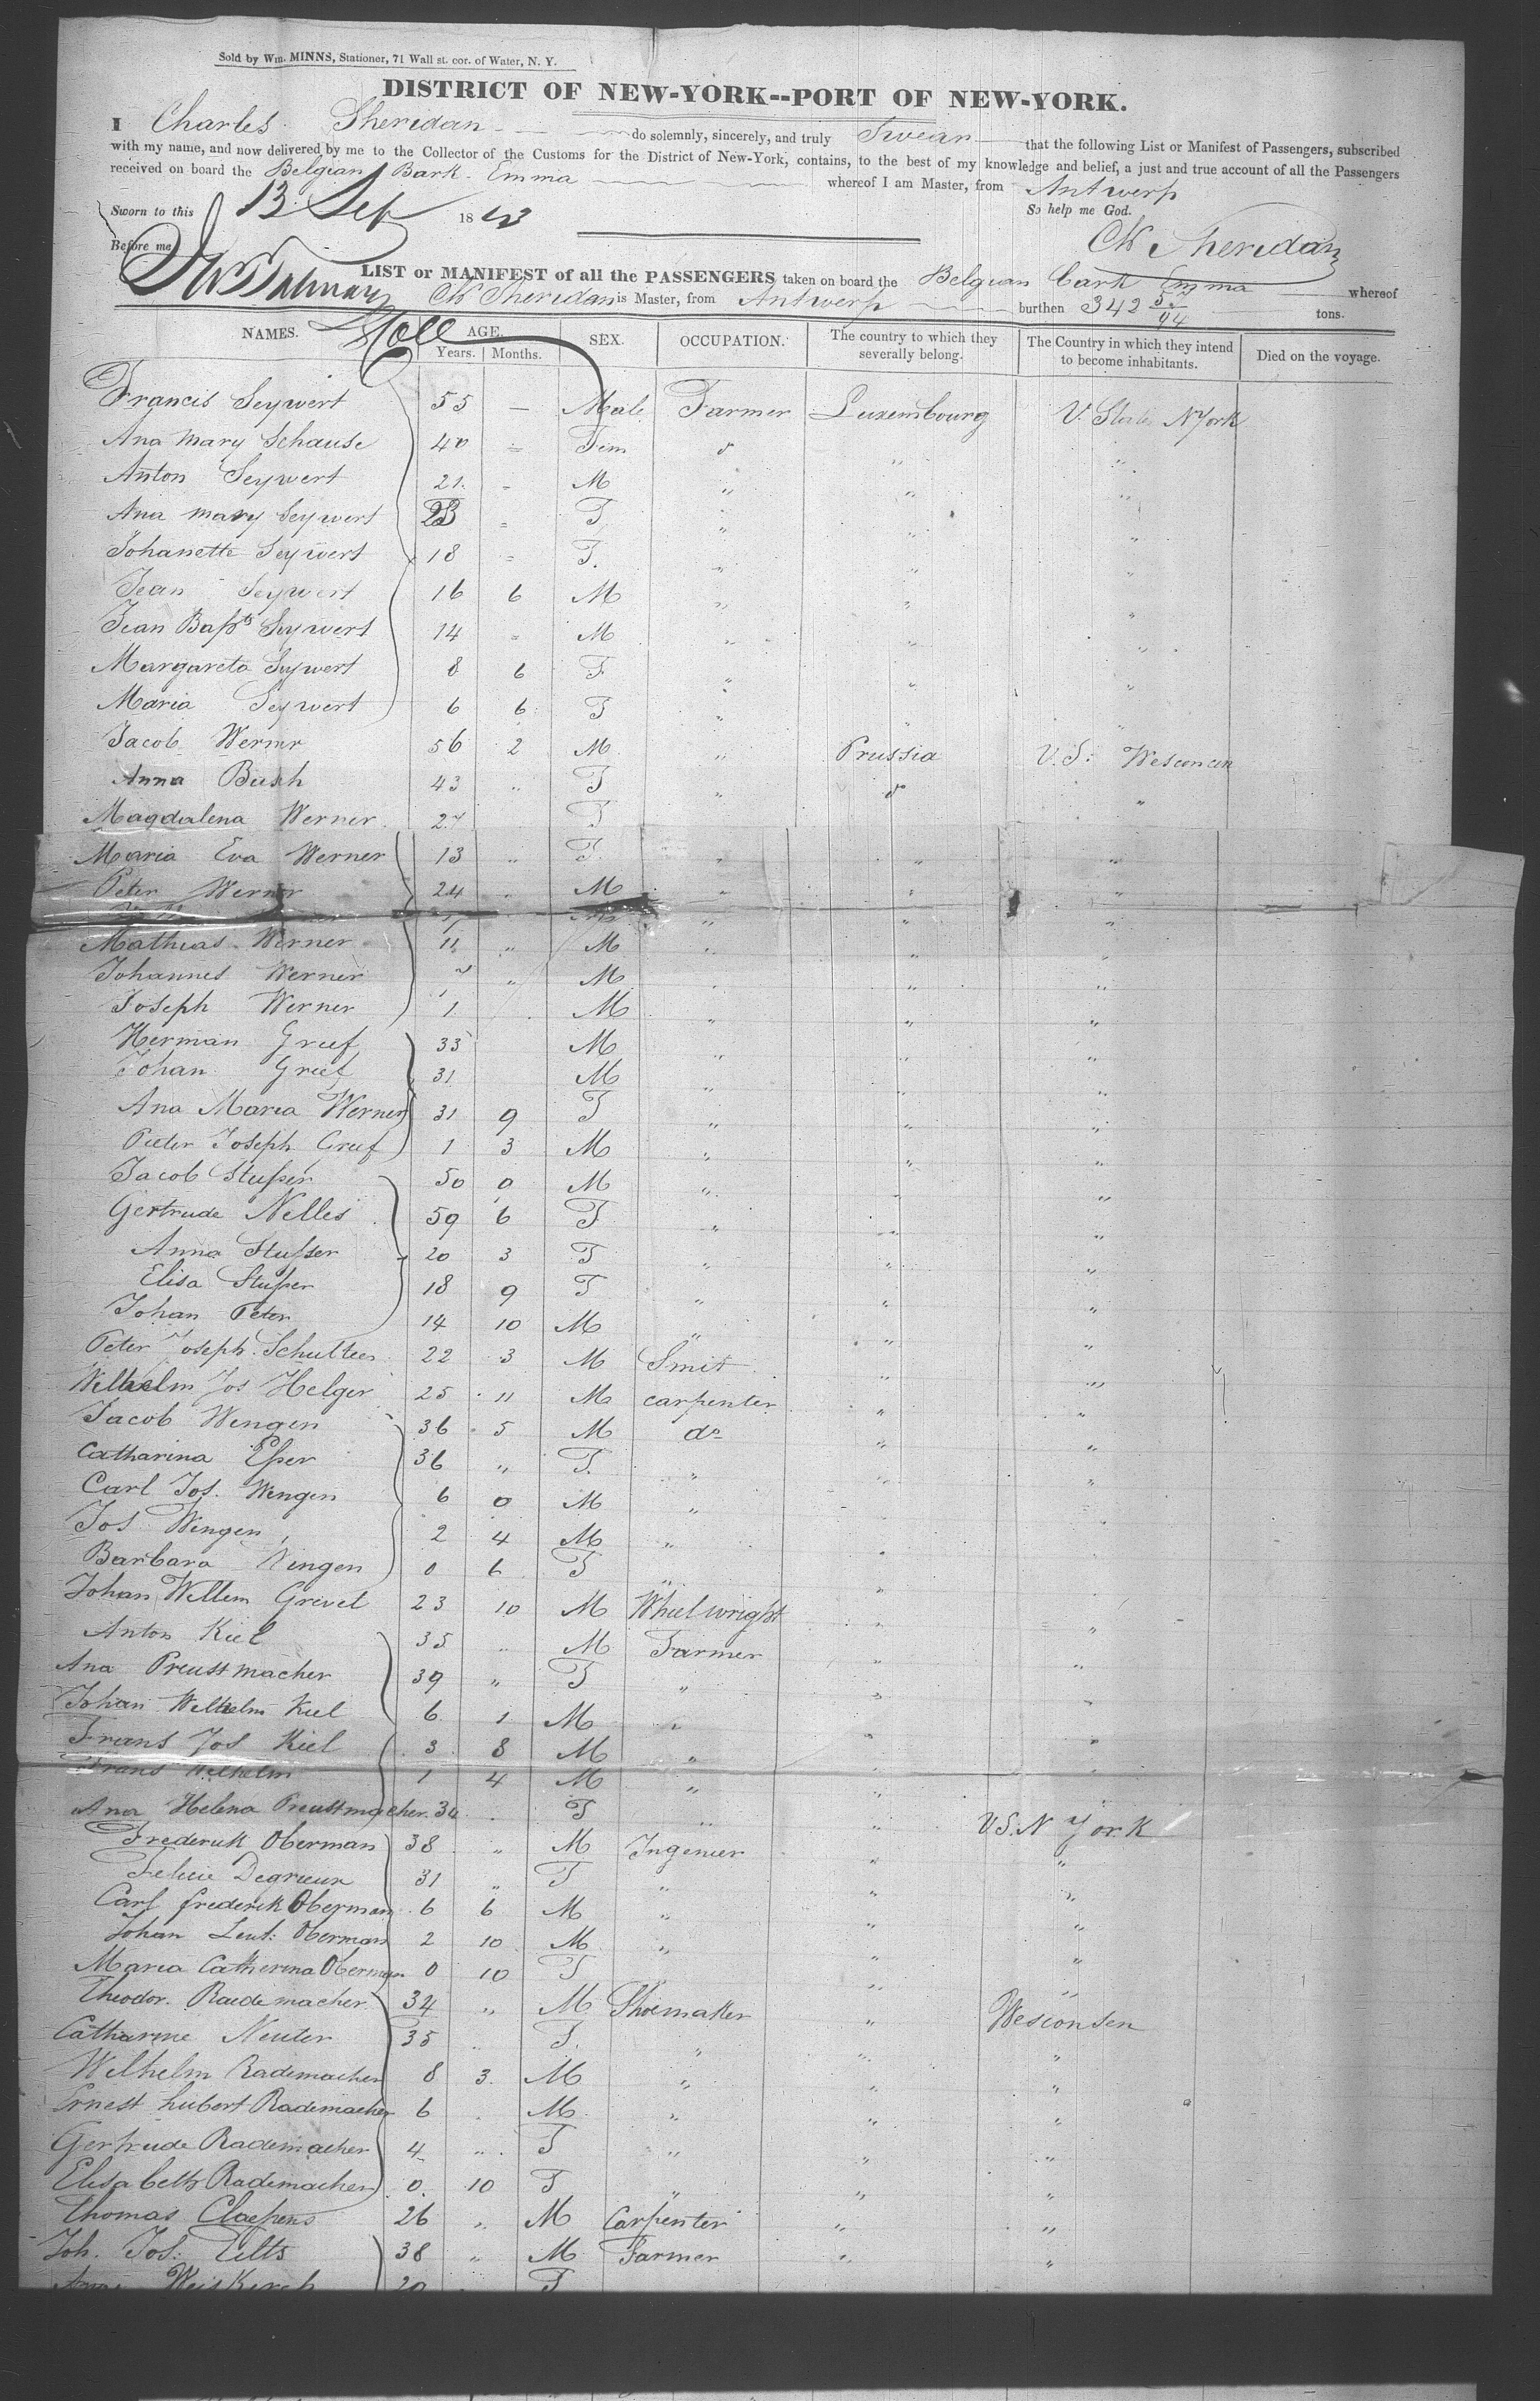 Sold by Wm. MINNS, Stationer, 71 Wall st. cor. of Water, N. Y.
DISTRICT OF NEW-YORK--PORT OF NEW-YORK.
I Charles Sheridan do solemnly, sincerely, and truly Swear that the following List or Manifest of Passengers, subscribed
with my name, and now delivered by me to the Collector of the Customs for the District of New-York, contains, to the best of my knowledge and belief, a just and true account of all the Passengers
received on board the Belgian Bark Emma whereof I am Master, from Antwerp
Sworn to this 13 Sep 1843 So help me God.
Before me Ch Sheridan
LIST or MANIFEST of all the PASSENGERS taken on board the Belgian bark Emma whereof
Ch Sheridan is Master, from Antwerp burthen 342 5/94 tons.
NAMES. AGE. Years. Months. SEX. OCCUPATION. The country to which they severally belong. The Country in which they intend to become inhabitants. Died on the voyage.
Francis Seywert 55 — Male Farmer Luxembourg U. States N York
Ana Mary Schause 40 " Fem do " "
Anton Seywert 21 " M " " "
Ana mary Seywert F " "
Johanette Seywert 18 " F. " " "
Jean Seywert 16 6 M " " "
Jean Bapt Seywert 14 " M " " "
Margareta Seywert 8 6 F " " "
Maria Seywert 6 6 F " " "
Jacob Werner 56 2 M " Prussia U.S: Wesconcin
Anna Bush 43 " F " do "
Magdalena Werner 27 F
Maria Eva Werner 13 " F. " " "
Peter Werner 24 " M " " "
Mathias Werner 11 " M " " "
Johannes Werner " M " " "
Joseph Werner 1 M " " "
Herman Greef 33 M " " "
Johan Greef 31 M " " "
Ana Maria Werner 31 9 F " " "
Pieter Joseph Greef 1 3 M " " "
Jacob Stusser 50 0 M " " "
Gertrude Nelles 59 6 F " " "
Anna Stusser 20 3 F " " "
Elisa Stusser 18 9 F " " "
Johan Peter 14 10 M " " "
Peter Joseph Schultees 22 3 M Smit " "
Wilhelm Jos Helger 25 11 M carpenter " "
Jacob Wengen 36 5 M do " "
Catharina Esser 36 " F. " " "
Carl Jos. Wengen 6 0 M " " "
Jos Wengen 2 4 M " " "
Barbara Wengen 0 6 F " "
Johan Willem Grevel 23 10 M Wheelwright " "
Anton Kiel 35 " M Farmer " "
Ana Preussmacher 39 " F " " "
Johan Wilhelm Kiel 6 1 M " " "
Frans Jos Kiel 3 8 M " " "
Frans Wilhelm 1 4 M " "
Ana Helena Preussmacher 34 F " " U.S: N York
Frederick Oberman 38 " M Ingenier " "
Felicie Degrieux 31 " F " " "
Carl frederik Oberman 6 6 M " " "
Johan Leut: Oberman 2 10 M " " "
Maria Catherina Oberman 0 10 F " "
Theodor. Raedemacher 34 " M Shoemaker " Wesconsen
Catharine Neuter 35 " F. " " "
Wilhelm Rademacher 8 3 M " " "
Ernest hubert Rademacher 6 M " " "
Gertrude Rademacher 4 " F " " "
Elisabeth Rademacher 0 10 F " " "
Thomas Claessens 26 " M Carpenter " "
Joh. Jos: Eilts 38 " M Farmer " "
Anna Weiskerch 20 F